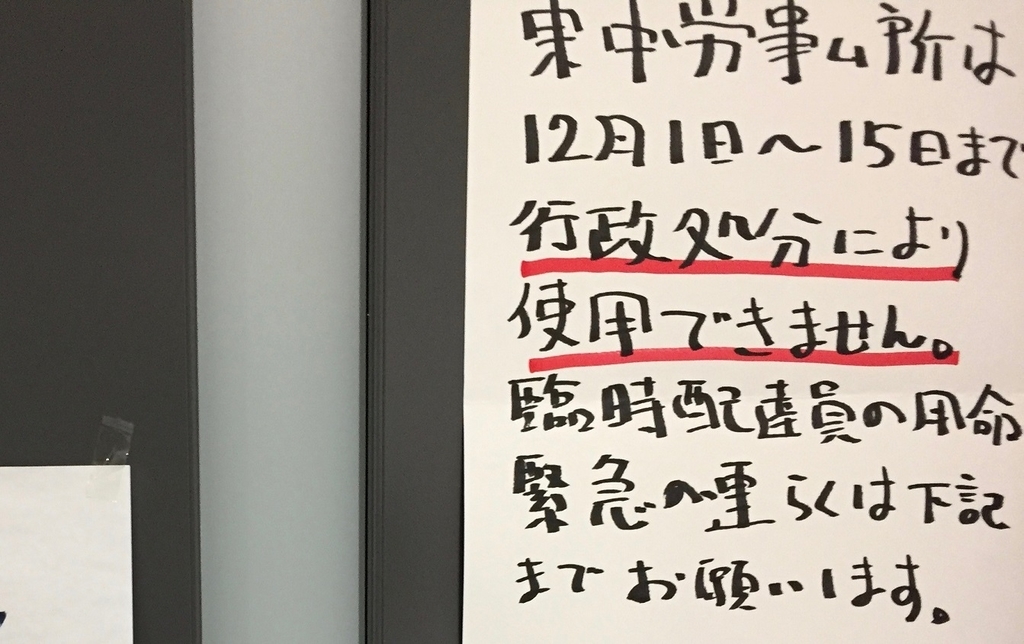 東中労事ム所は
12月1日～15日まで
行政処分により
使用できません。
臨時配達員の用命
緊急の連らくは下記
までお願いします。